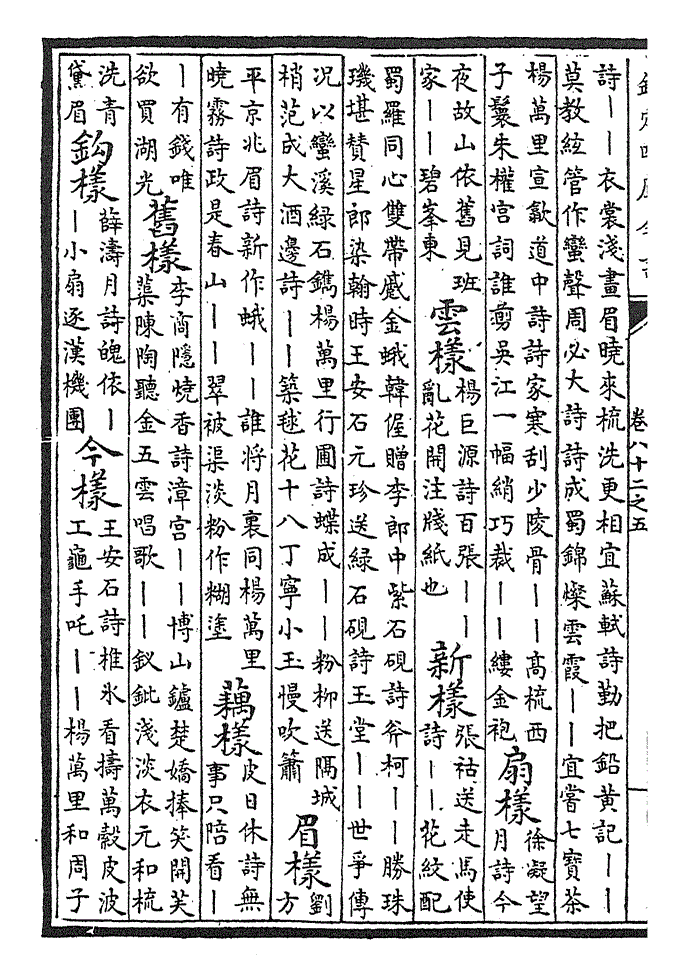 欽定四庫全書
卷八十二之五
詩｜｜衣裳淺畫眉曉來梳洗更相宜蘇軾詩勤把鉛黃記｜｜
莫教絃管作蠻聲周必大詩詩成蜀錦燦雲霞｜｜宜嘗七寶茶
楊萬里宣歙道中詩詩家寒刮少陵骨｜｜高梳西
子鬟朱權宮詞誰剪吳江一幅綃巧裁｜｜縷金袍
扇樣
徐凝望
月詩今
夜故山依舊見班
家｜｜碧峯東
雲樣
楊巨源詩百張｜｜
亂花開注牋紙也
新樣
張祜送走馬使
詩｜｜花紋配
蜀羅同心雙帶蹙金蛾韓偓贈李郎中紫石硯詩斧柯｜｜勝珠
璣堪贊星郎染翰時王安石元珍送綠石硯詩玉堂｜｜世爭傳
况以蠻溪綠石鐫楊萬里行圃詩蝶成｜｜粉柳送隔城
梢范成大酒邊詩｜｜築毬花十八丁寧小玉慢吹簫
眉樣
劉
方
平京兆眉詩新作蛾｜｜誰將月裏同楊萬里
曉霧詩政是春山｜｜翠被渠淡粉作糊塗
藕樣
皮日休詩無
事只陪看｜
｜有錢唯
欲買湖光
舊樣
李商隱燒香詩漳宮｜｜博山鑪楚嬌捧笑開芙
蕖陳陶聽金五雲唱歌｜｜釵鈚淺淡衣元和梳
洗青
黛眉
鈎樣
薛濤月詩魄依｜
｜小扇逐漢機團
今樣
王安石詩椎氷看擣萬穀皮波
工龜手吒｜｜楊萬里和周子